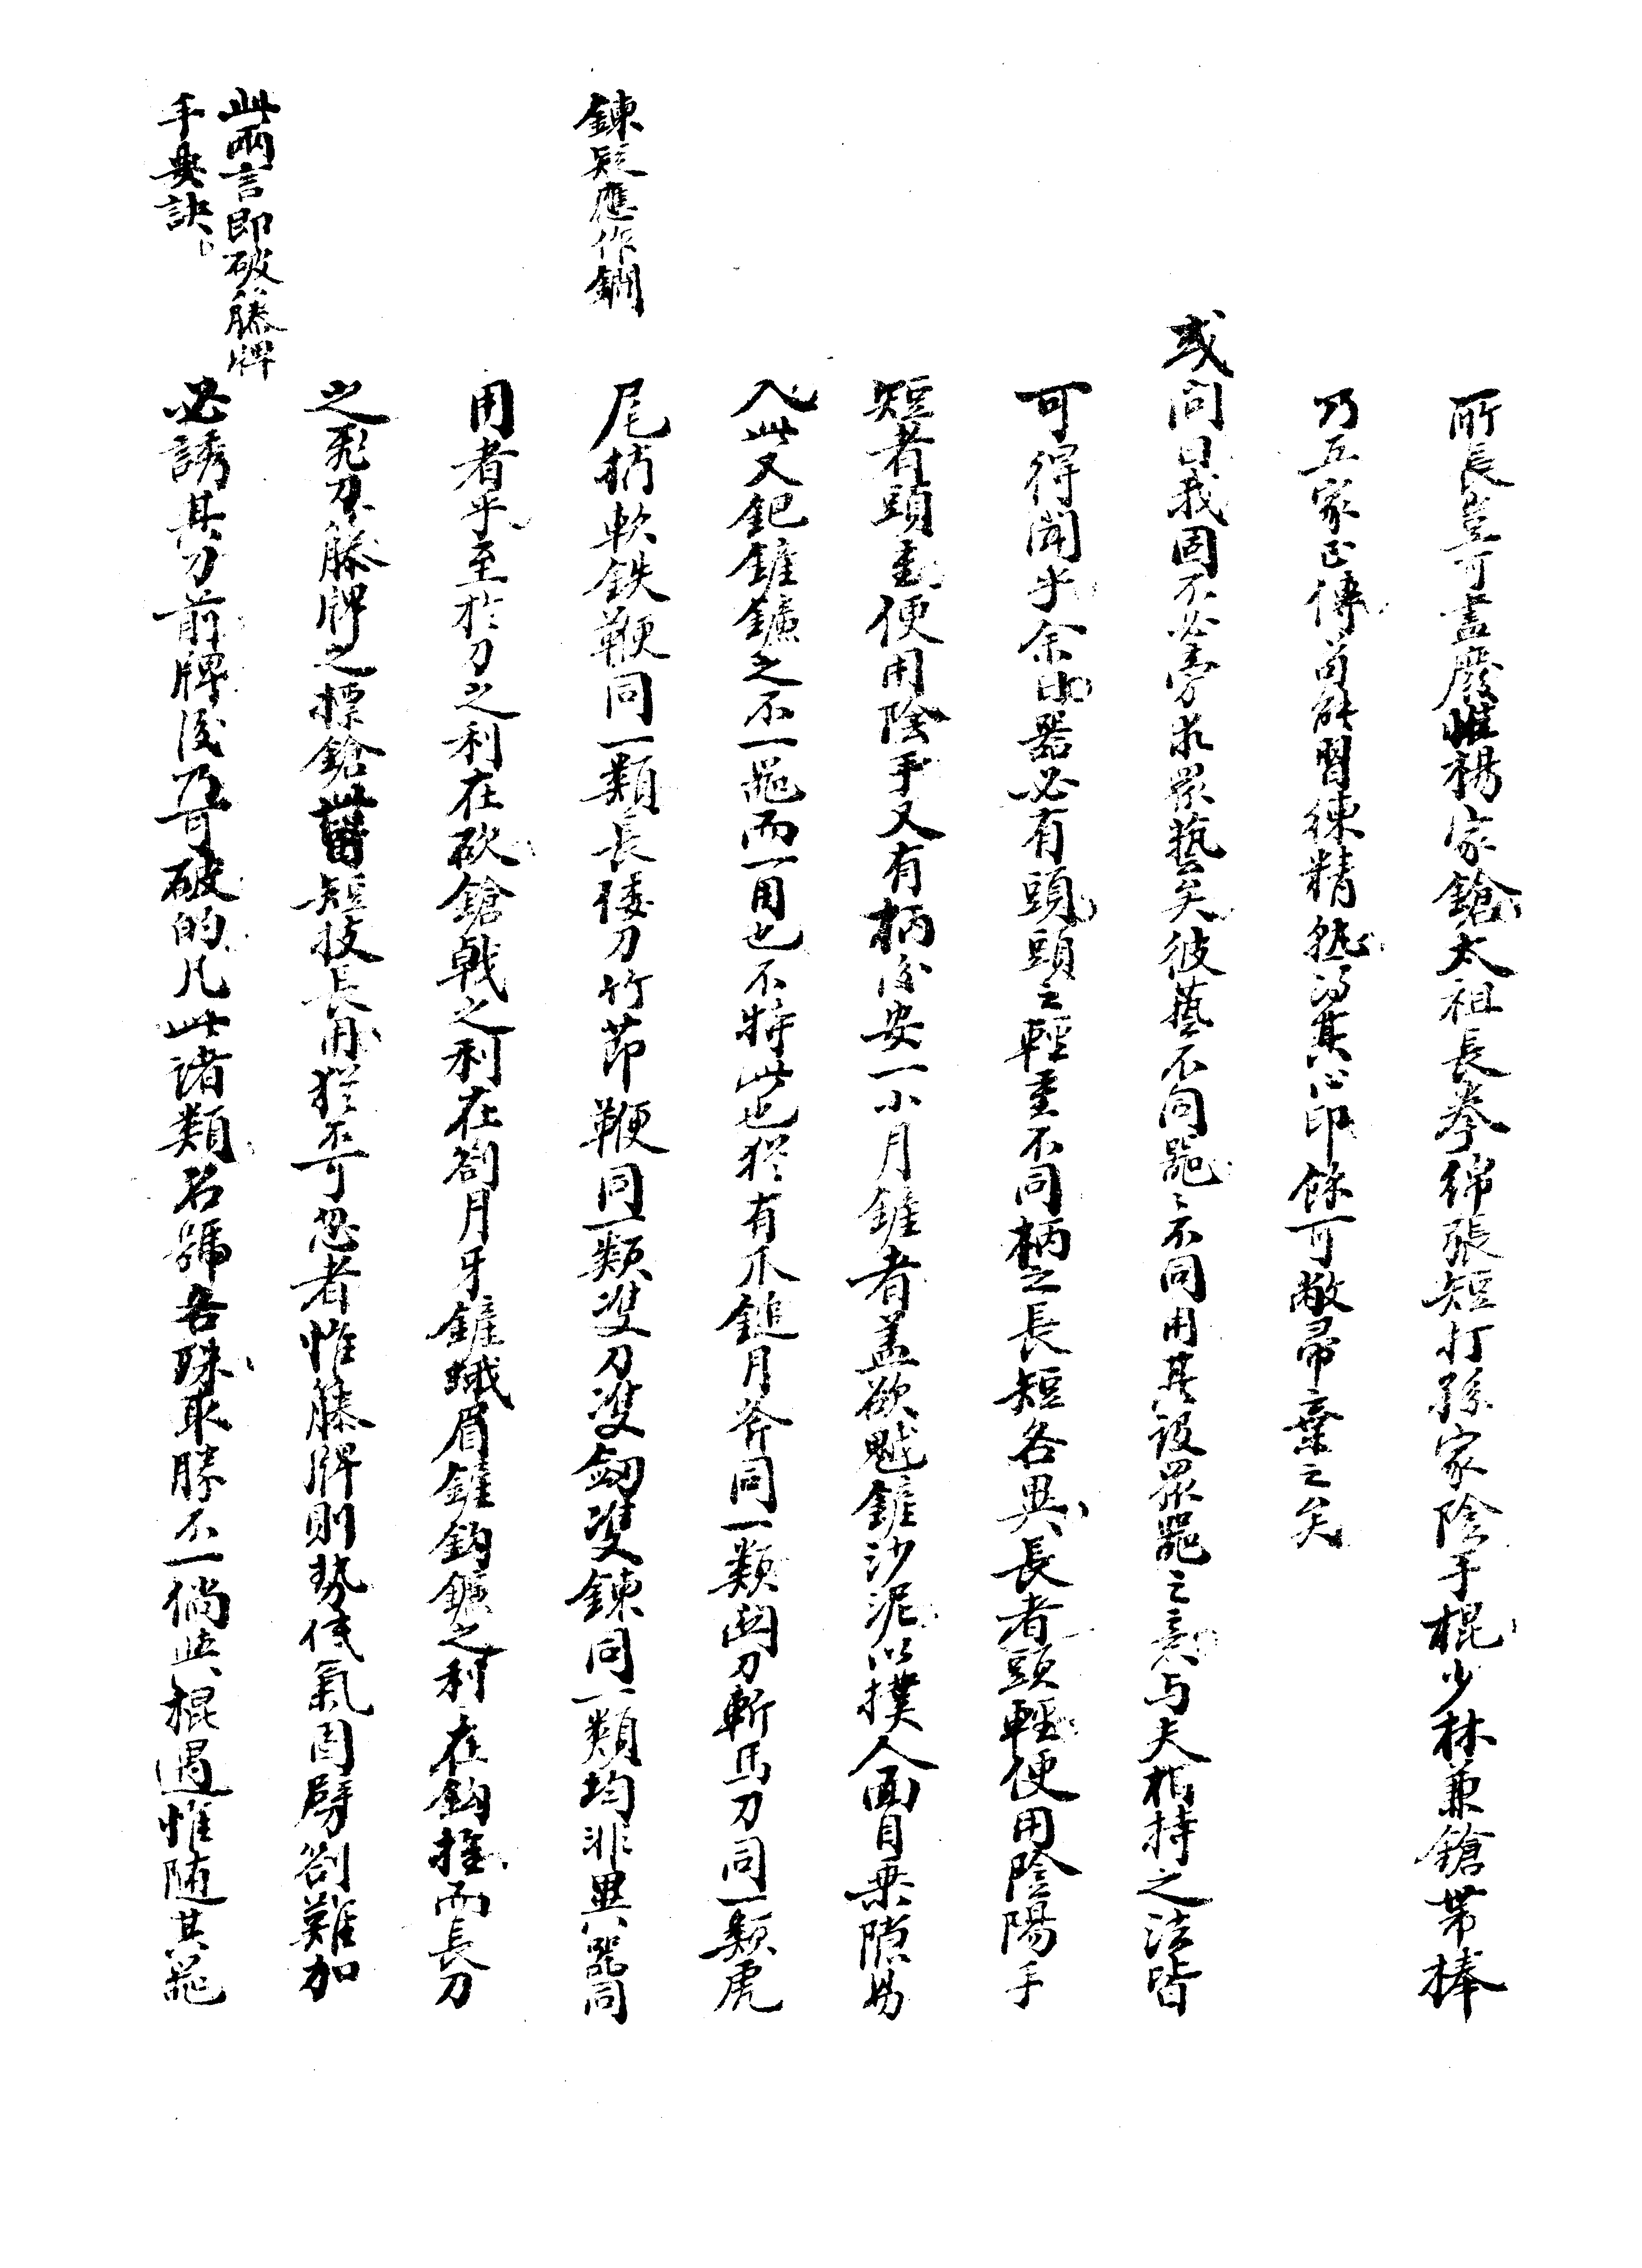 所長豈可盡廢惟楊家鎗太祖長拳綿張短打孫家陰手棍少林兼鎗帶棒
乃五家正傳苟能習練精熟得其心印餘可敝帚棄之矣
或問曰我固不必旁求眾藝矣彼藝不同器器不同用其設眾器之意与夫相持之法皆
可得聞乎余曰器必有頭頭之輕重不同柄之長短各異長者頭輕便用陰陽手
短者頭重便用陰手又有柄後安一小月鏟者盖欲鏟沙泥以撲人面目乗隙易
入此叉鈀鏟鑣之不一器而一用也不特此也猶有爪鎚月斧同一類関刀斬馬刀同一類虎
尾梢軟鉄鞭同一類長倭刀竹節鞭同一類雙刀雙劒雙鍊同一類均非異器同
用者乎至於刀之利在砍鎗戟之利在劄月牙鏟蛾眉鏟鈎鐮之利在鈎推而長刀
之飛刀籐牌之標鎗此皆短技長用猶不可忽者惟籐牌則勢低氣固劈劄難加
必誘其刀前牌後乃可破的凡此諸類名號各殊取勝不一倘与棍遇惟随其器
鍊疑應作鐗
此兩言即破籐牌
手奧訣